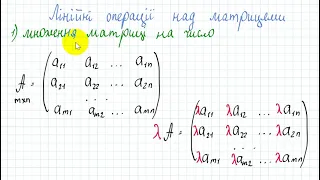 Лінійні операції над матрицями
1) множення матриці на число
a₁₁ a₁₂ ... a₁ₙ
A = a₂₁ a₂₂ ... a₂ₙ
m×n ...
aₘ₁ aₘ₂ ... aₘₙ
λa₁₁ λa₁₂ ... λa₁ₙ
λ A = λa₂₁ λa₂₂ ... λa₂ₙ
...
λaₘ₁ λaₘ₂ ... λaₘₙ